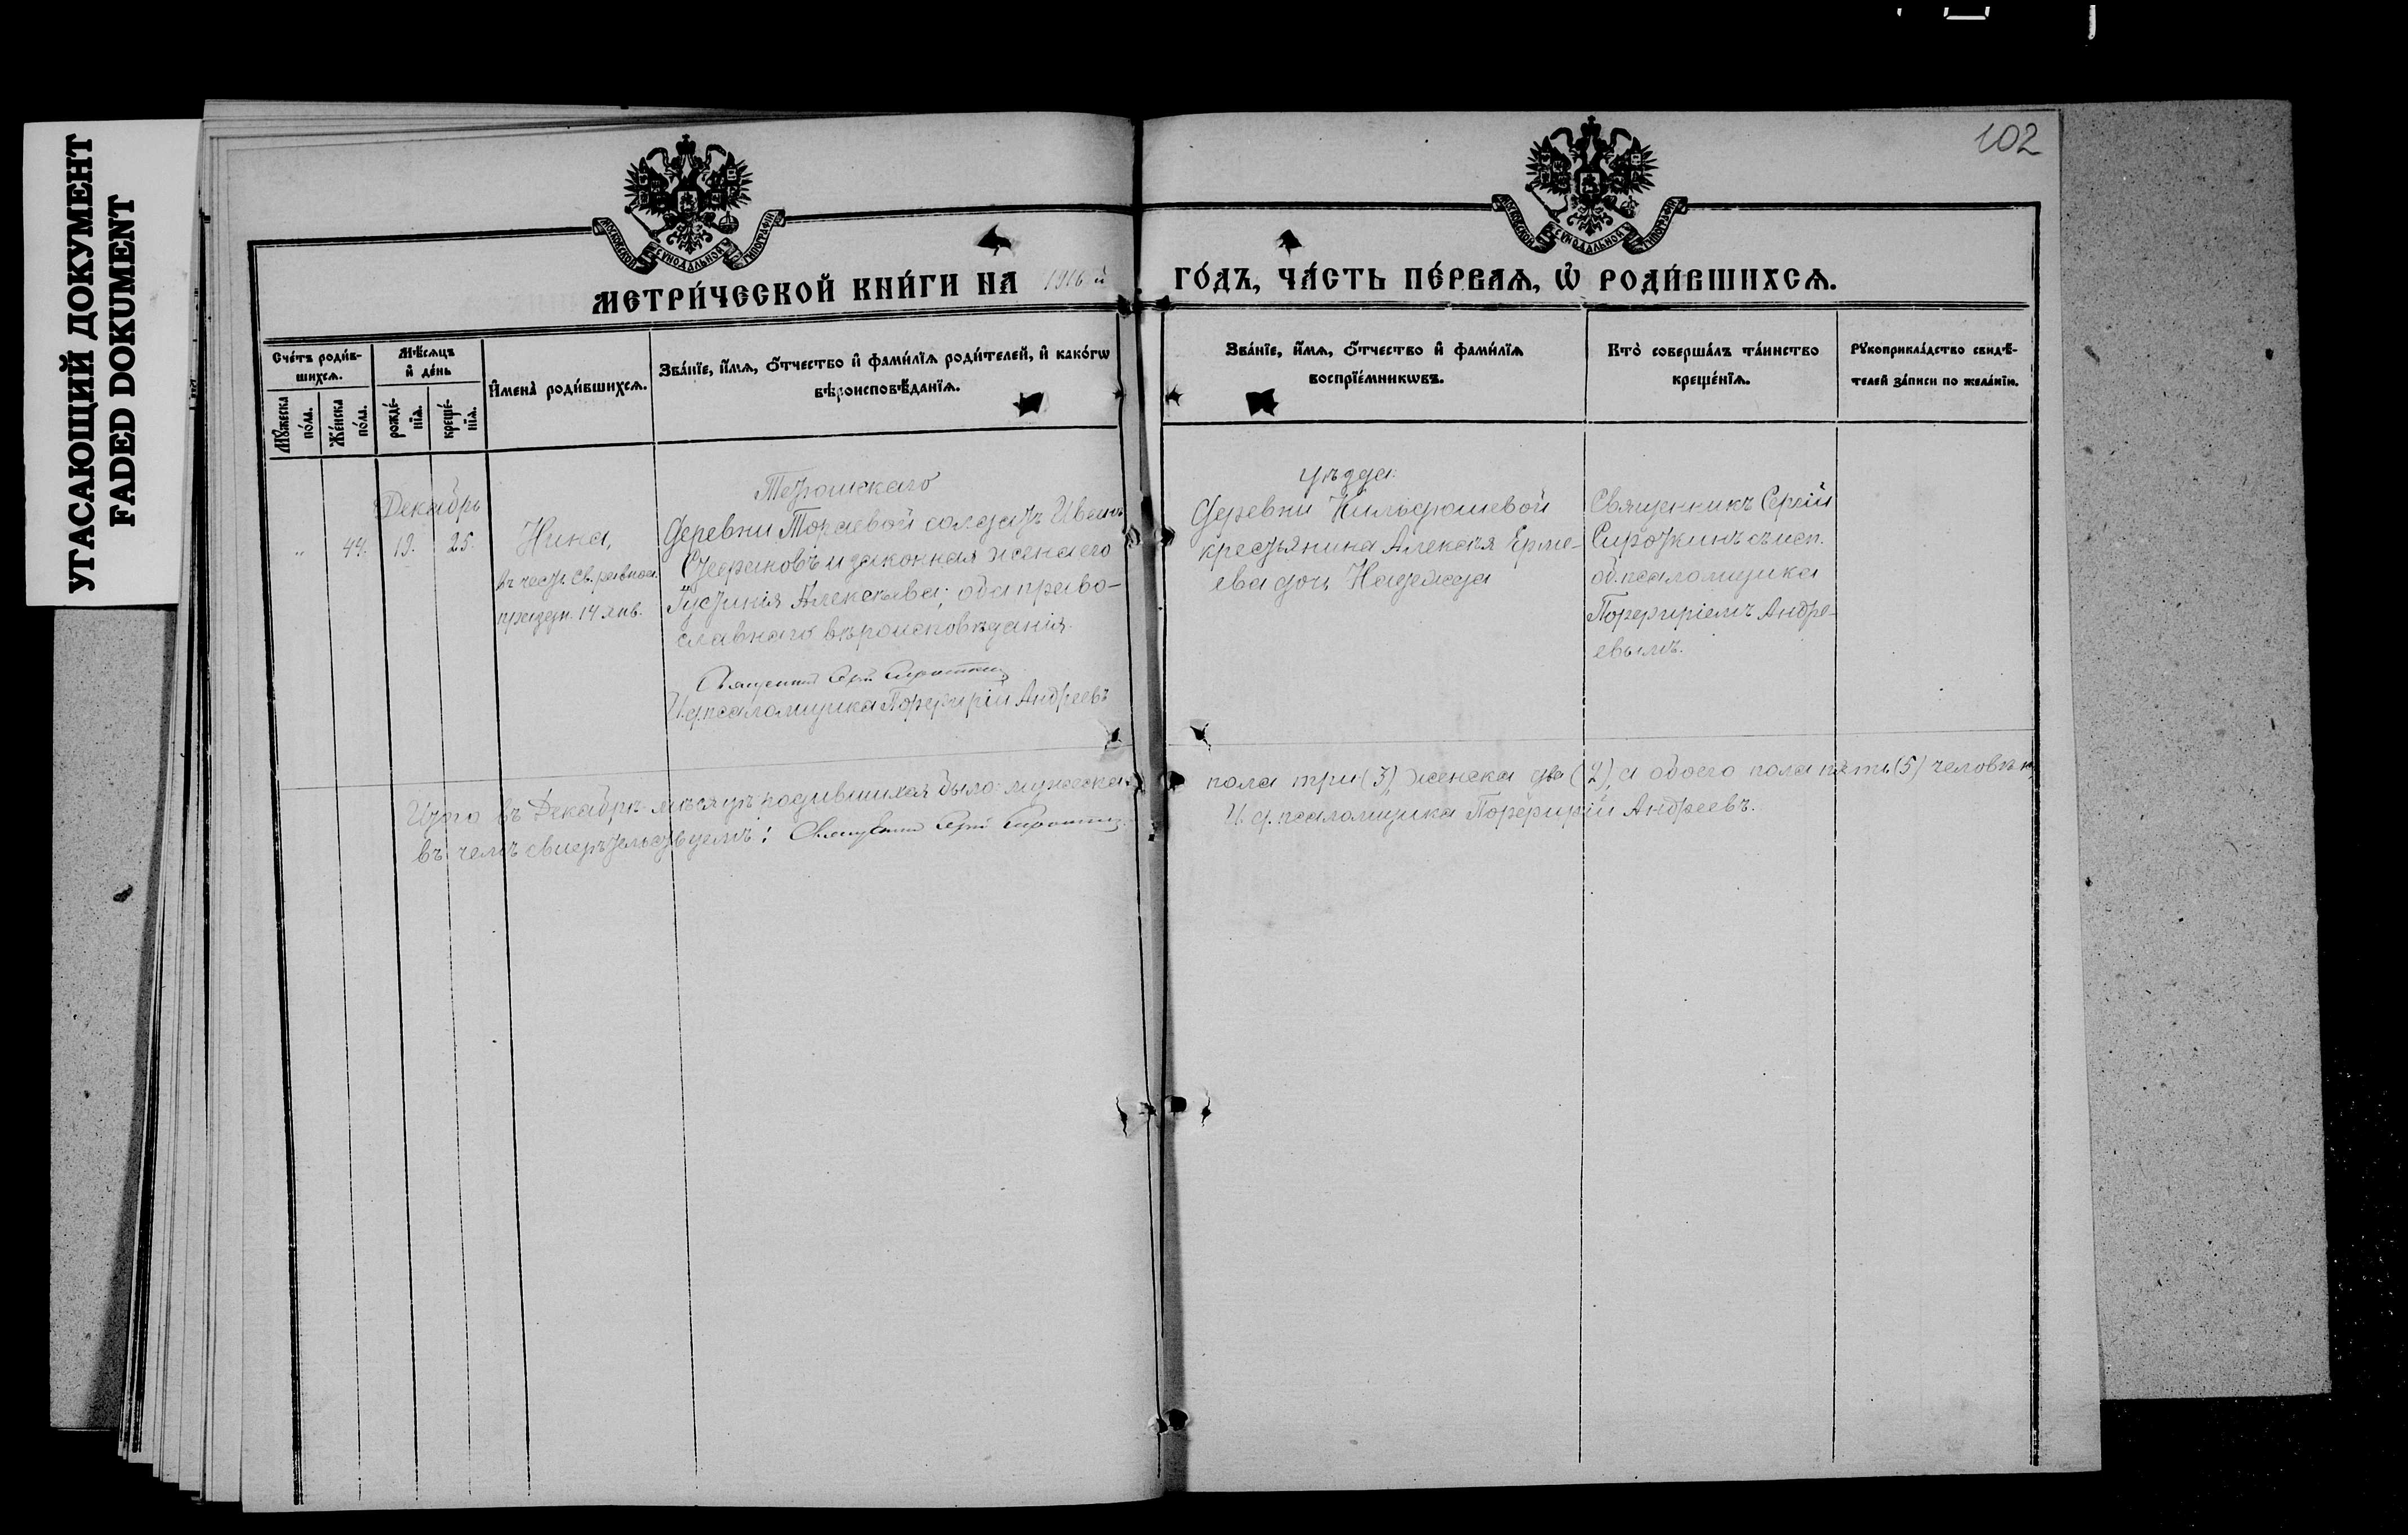 УГАСАЮЩИЙ ДОКУМЕНТ
FADED DOKUMENT
102
МОСКОВСКОЙ СѴНОДАЛЬНОЙ ТИПОГРАФІИ
МОСКОВСКОЙ СѴНОДАЛЬНОЙ ТИПОГРАФІИ
МЕТРИ́ЧЕСКОЙ КНИ́ГИ НА 1916 й ГО́ДЪ, ЧА́СТЬ ПЕ́РВАѦ, Ѡ҆ РОДИ́ВШИХСѦ.
Сче́тъ роди́в-
шихсѧ.
Мꙋ́жеска
по́ла.
Же́нска
по́ла.
Мѣ́сѧцъ
и҆ де́нь
рожде́-
нїѧ.
креще́-
нїѧ.
И҆мена̀ роди́вшихсѧ.
Зва́нїе, и҆́мѧ, ѻ҆́тчество и҆ фами́лїѧ роди́телей, и҆ како́гѡ
вѣроисповѣ́данїѧ.
Зва́нїе, и҆́мѧ, ѻ҆́тчество и҆ фами́лїѧ
воспрїе́мникѡвъ.
Кто̀ соверша́лъ та́инство
креще́нїѧ.
Рꙋкоприкла́дство свидѣ́-
телей за́писи по жела́нїю.
Декабрь
„ 44. 19. 25.
Нина,
въ честь св. равноап.
праздн. 14 янв.
Тетюшскаго
Деревни Тораевой солдатъ Иванъ
и законная жена его
Іустинія Алексѣева; оба право-
славнаго вѣроисповѣданія.
Священникъ Сергій Сироткинъ
И. д. псаломщика Порфирій Андреевъ
уѣзда:
Деревни Кильдюшевой
крестьянина Алексѣя Ерме-
ева дочь Надежда
Священникъ Сергій
Сироткинъ съ исп.
об. псаломщика
Порфиріемъ Андре-
евымъ.
Итого въ Декабрѣ мѣсяцѣ родившихся было: мужеска пола три (3), женска два (2), а обоего пола пять (5) человѣкъ,
въ чемъ свидѣтельствуемъ: Священникъ Сергій Сироткинъ. И. д. псаломщика Порфирій Андреевъ.